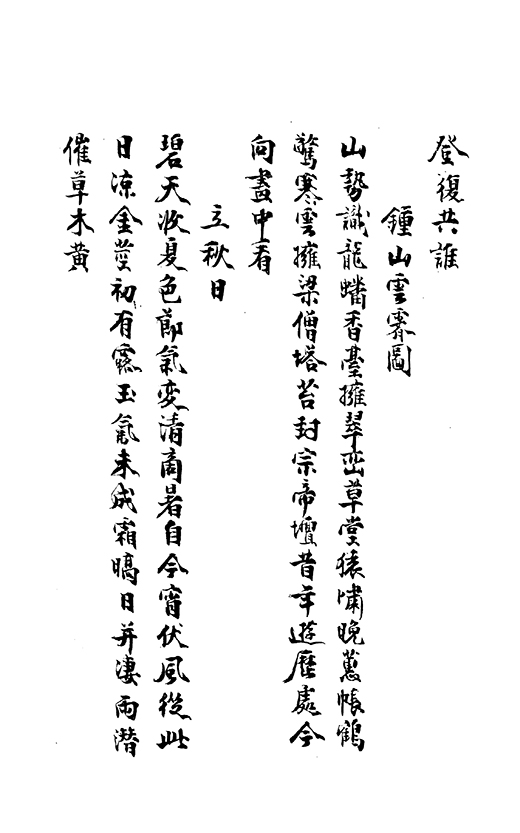 登復共誰
鍾山雲霽圖
山勢識龍蟠香臺擁翠巒草堂猿嘯晚蕙帳鶴
驚寒雲擁梁僧塔苔封宗帝壇昔年遊歷處今
向畫中看
立秋日
碧天收夏色節氣変清商暑自今宵伏風從此
日涼金莖初有露玉氣未成霜暠日并淒雨潛
催草木黃